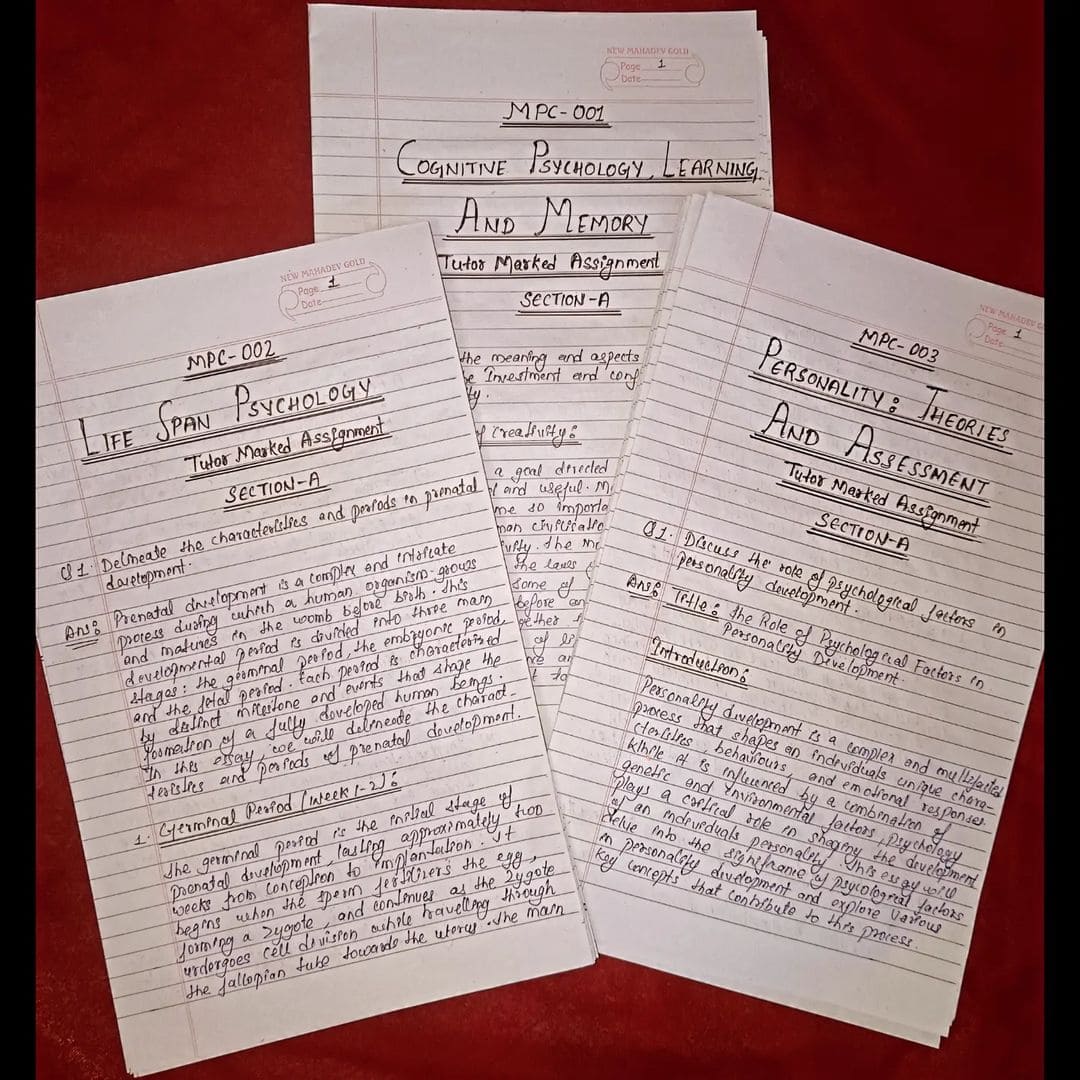 NEW MAHADEV GOLD
Page 1
Date
MPC-001
COGNITIVE PSYCHOLOGY, LEARNING
AND MEMORY
Tutor Marked Assignment
SECTION-A
the meaning and aspects
Investment and conf
ty.
f Creativity:
a goal directed
and useful. M
me so importa
man civilizatio
ivity. the mo
the laws
some of
before con
gether
of is
re an
t to
NEW MAHADEV GOLD
Page 1
Date
MPC-002
LIFE SPAN PSYCHOLOGY
Tutor Marked Assignment
SECTION-A
Q1. Delineate the characteristics and periods in prenatal
development.
Ans: Prenatal development is a complex and intricate
process during which a human organism grows
and matures in the womb before birth. This
developmental period is divided into three main
stages: the germinal period, the embryonic period,
and the fetal period. Each period is characterized
by distinct milestone and events that shape the
formation of a fully developed human beings.
In this essay, we will delineate the charact-
teristics and periods of prenatal development.
1. Germinal Period (Week 1-2):
The germinal period is the initial stage of
prenatal development, lasting approximately two
weeks from conception to implantation. It
begins when the sperm fertilizers the egg,
forming a zygote, and continues as the zygote
undergoes cell division while travelling through
the fallopian tube towards the uterus. The main
NEW MAHADEV G
Page 1
Date
MPC-003
PERSONALITY: THEORIES
AND ASSESSMENT
Tutor Marked Assignment
SECTION-A
Q1. Discuss the role of psychological factors in
personality development.
Ans: Title: the Role of Psychological Factors in
Personality Development.
Introduction:
Personality development is a complex and multifaceted
process that shapes an individuals unique chara-
cteristics, behaviours, and emotional responses.
While it is influenced by a combination of
genetic and environmental factors, psychology
plays a critical role in shaping the development
of an individuals personality. This essay will
delve into the significance of psycological factors
in personality development and explore various
key concepts that contribute to this process.